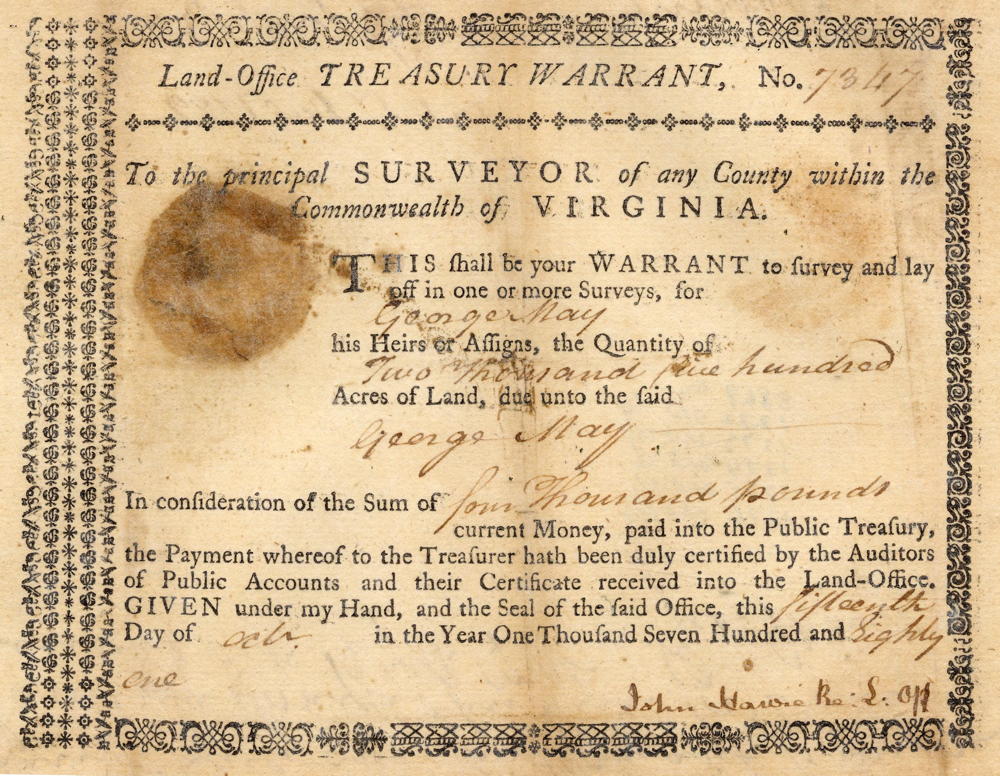 Land-Office TREASURY WARRANT, No. 7347
To the principal SURVEYOR of any County within the
Commonwealth of VIRGINIA.
THIS ſhall be your WARRANT to ſurvey and lay
off in one or more Surveys, for
George May
his Heirs or Aſſigns, the Quantity of
Two Thousand five hundred
Acres of Land, due unto the ſaid
George May
In conſideration of the Sum of four Thousand pounds
current Money, paid into the Public Treaſury,
the Payment whereof to the Treaſurer hath been duly certified by the Auditors
of Public Accounts and their Certificate received into the Land-Office.
GIVEN under my Hand, and the Seal of the ſaid Office, this fifteenth
Day of octr. in the Year One Thouſand Seven Hundred and Eighty
one
John Harvie Re: L. Off